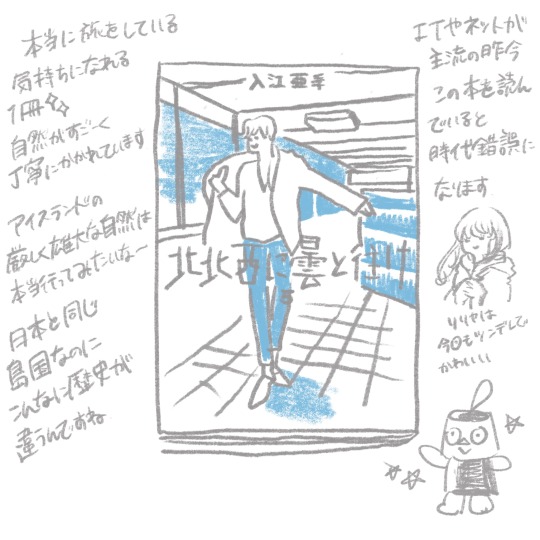 本当に旅をしている
気持ちになれる
1冊
自然がすごく
丁寧にかかれています
アイスランドの
厳しく雄大な自然は
本当行ってみたいな〜
日本と同じ
島国なのに
こんなに歴史が
違うんですね
入江亜季
北北西に曇と往け
ITやネットが
主流の昨今
この本を読ん
でいると
時代錯誤に
なります
リリヤは
今日もツンデレで
かわいい